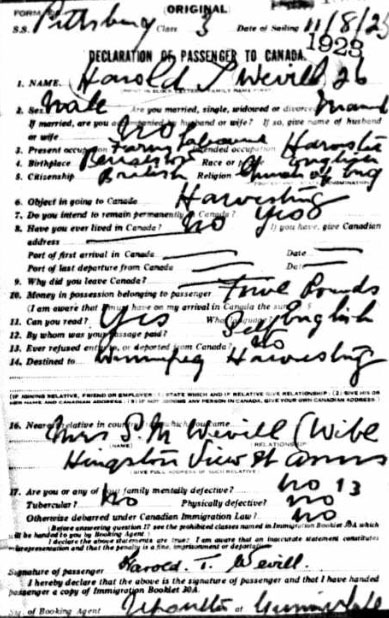 FORM ORIGINAL
S.S. Pittsburg Class 3 Date of Sailing 11/8/23
1923
DECLARATION OF PASSENGER TO CANADA.
1. NAME. Harold T Wevill 26
2. Sex Male Are you married, single, widowed or divorced
If married, are you accompanied by husband or wife? If so, give name of husband
or wife No
3. Present occupation Farm Labourer Intended occupation
4. Birthplace Race or English
5. Citizenship British Religion Church of Eng
6. Object in going to Canada Harvesting
7. Do you intend to remain permanently in Canada? Yes
8. Have you ever lived in Canada? No If you have, give Canadian
address
Port of first arrival in Canada Date
Port of last departure from Canada Date
9. Why did you leave Canada?
10. Money in possession belonging to passenger Five Pounds
(I am aware that I must have on my arrival in Canada the sum of $
11. Can you read? Yes What language? English
12. By whom was your passage paid? Self
13. Ever refused entry to, or deported from Canada? No
14. Destined to Winnipeg Harvesting
(IF JOINING RELATIVE, FRIEND OR EMPLOYER: (1) STATE WHICH AND IF RELATIVE GIVE RELATIONSHIP: (2) GIVE HIS OR
HER NAME AND CANADIAN ADDRESS. (3) IF NOT JOINING ANY PERSON IN CANADA, GIVE YOUR OWN CANADIAN ADDRESS)
16. Nearest relative in country from which you came
Mrs S. M Wevill Wife
(NAME) (RELATIONSHIP)
Kingston View St
(GIVE FULL ADDRESS OF SUCH RELATIVE)
17. Are you or any of your family mentally defective? No 13
Tubercular? No Physically defective? No
Otherwise debarred under Canadian Immigration Law? No
(Before answering question 17 see the prohibited classes named in Immigration Booklet 30A which
will be handed to you by Booking Agent)
I declare the above statements are true: I am aware that an inaccurate statement constitutes
misrepresentation and that the penalty is a fine, imprisonment or deportation
Signature of passenger Harold. T. Wevill.
I hereby declare that the above is the signature of passenger and that I have handed
passenger a copy of Immigration Booklet 30A.
Sig. of Booking Agent